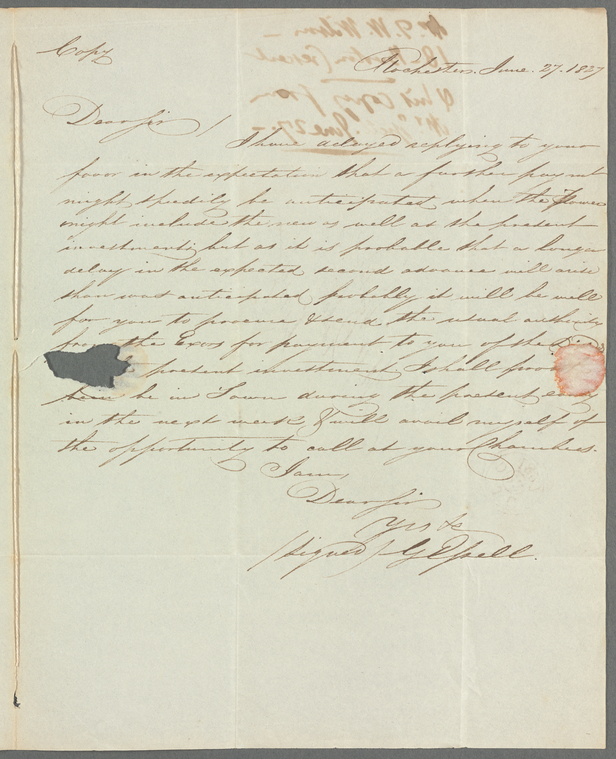 Copy
Rochester June. 27. 1827
Dear Sir /
I have delayed replying to your
favor in the expectation that a further payment
might speedily be anticipated when the
might include the new as well as the present
investment; but as it is probable that a longer
delay in the expected second advance will arise
than was anticipated probably it will be well
for you to procure & send the usual authority
from the Exors for payment to you of the
present investment I shall
be in Town during the present
in the next week, & will avail myself of
the opportunity to call at your Chambers.
I am,
Dear Sir
Yrs &c
(signed) G Essell.